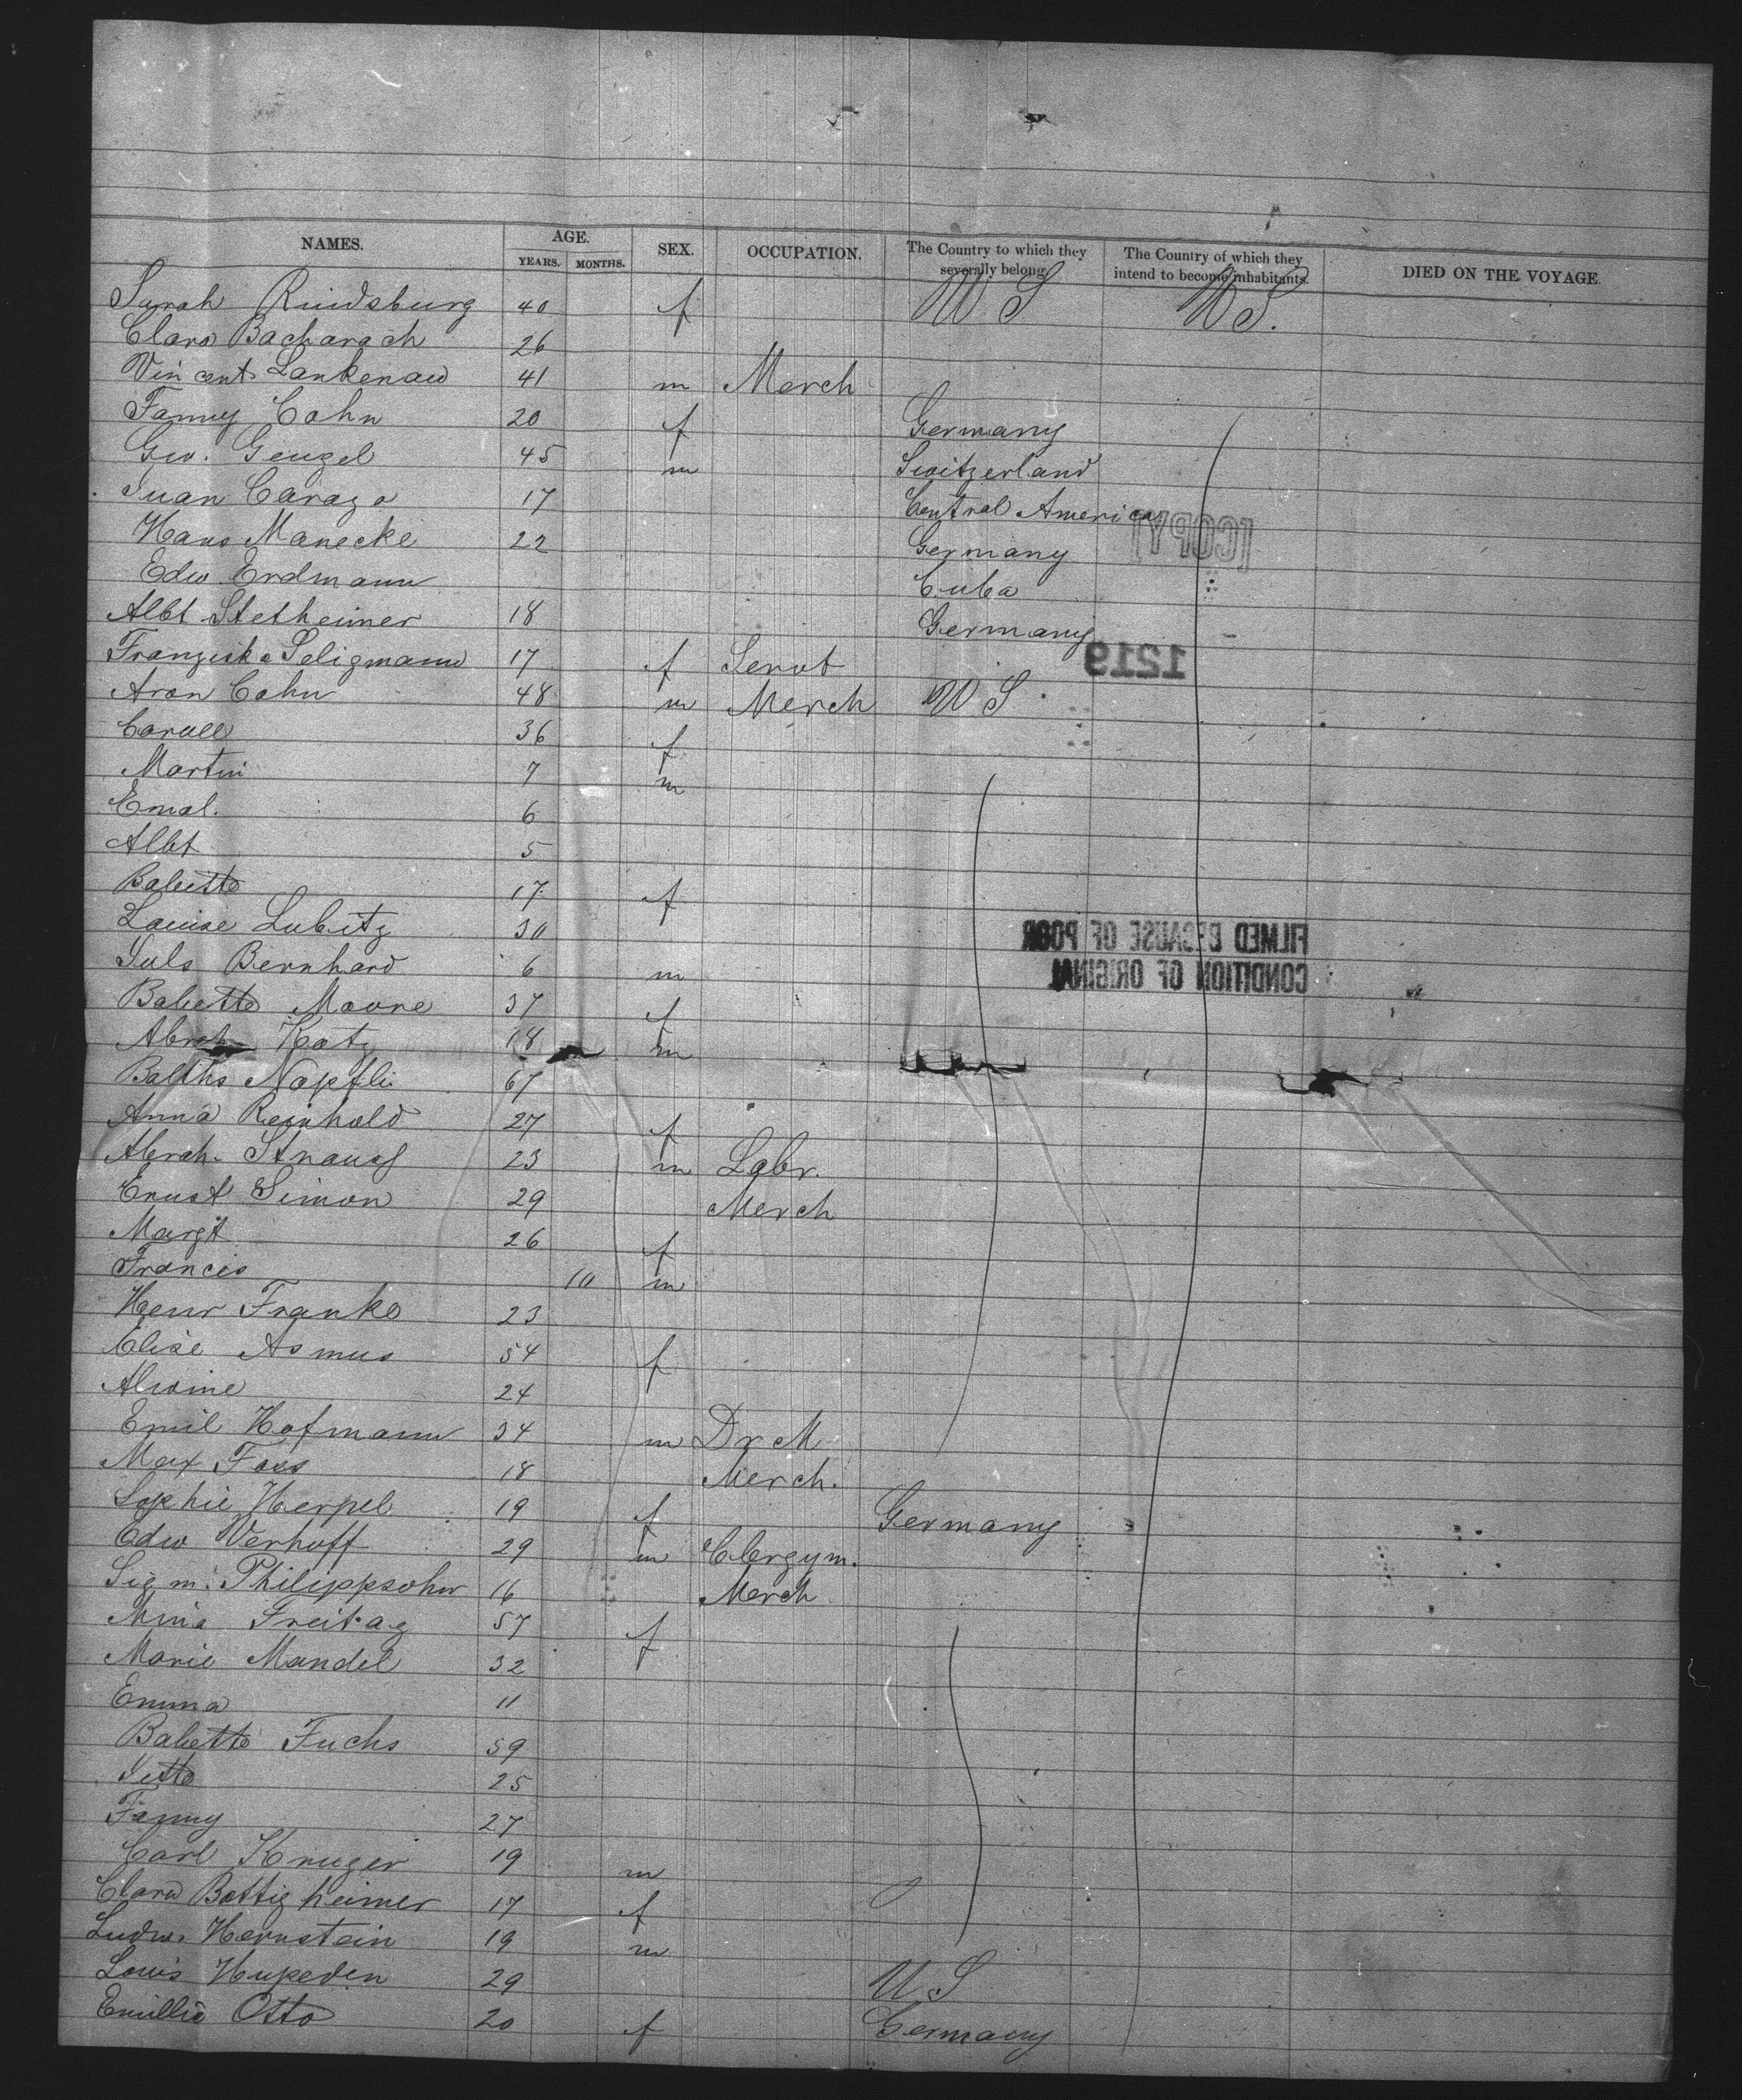 NAMES. AGE. SEX. OCCUPATION. The Country to which they severally belong. The Country of which they intend to become inhabitants. DIED ON THE VOYAGE.
YEARS. MONTHS.
Sarah Rindsburg 40 f U S U S.
Clara Bacharach 26
Vincent Lankenau 41 m Merch
Fanny Cohn 20 f Germany
Geo. Genzel 45 m Switzerland
Juan Carazo 17 Central America
[COPY]
Hans Manecke 22 Germany
Edw Erdmann Cuba
Albt Stetheimer 18 Germany
Franziska Seligmann 17 f Servt
1219
Aron Cohn 48 m Merch U S
36 f
Martin 7 m
Emal. 6
Albt 5
Babette 17 f
Louise Lubitz 30
FILMED BECAUSE OF POOR
CONDITION OF ORIGINAL
Juls Bernhard 6 m
Babette Moore 37 f
Abrah Katz 18 m
Balths Nopfli 67
Anna Reinhold 27 f
Abrah. Strauss 23 m Labr.
Ernst Simon 29 Merch
Margt 26 f
Francis 10 m
Henr Franke 23
Elise Asmus 54 f
Alwine 24
Emil Hofmann 34 m Dr M
Max Foss 18 Merch.
Sophie Herpel 19 f Germany
Edw Verhoff 29 m Clergym.
Sigm. Philippsohn 16 Merch
Mina Freitag 57 f
Marie Mandel 32 f
Emma 11
Babette Fuchs 59
Jette 25
Fanny 27
Carl Kruger 19 m
Clara Bottigheimer 17 f
Ludw. Hernstein 19 m
Louis Hupeden 29 U S
Emillie Otto 20 f Germany